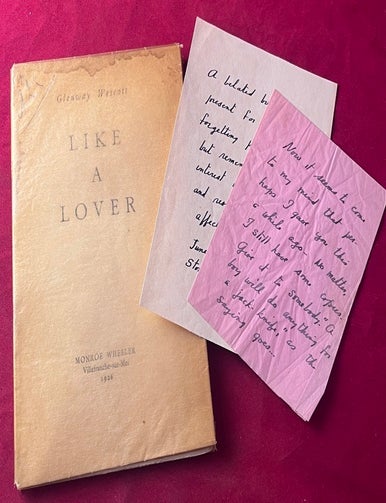 Glenway Wescott
LIKE
A
LOVER
MONROE WHEELER
Villefranche-sur-Mer
1926
A belated
present for
forgetting
but remem
interest
and
affec
June
Now it seems to come
to my mind that per-
haps I gave you this
a while ago. No matter,
I still have some copies.
Give it to somebody. "A
boy will do anything for
a jack knife", as the
saying goes...